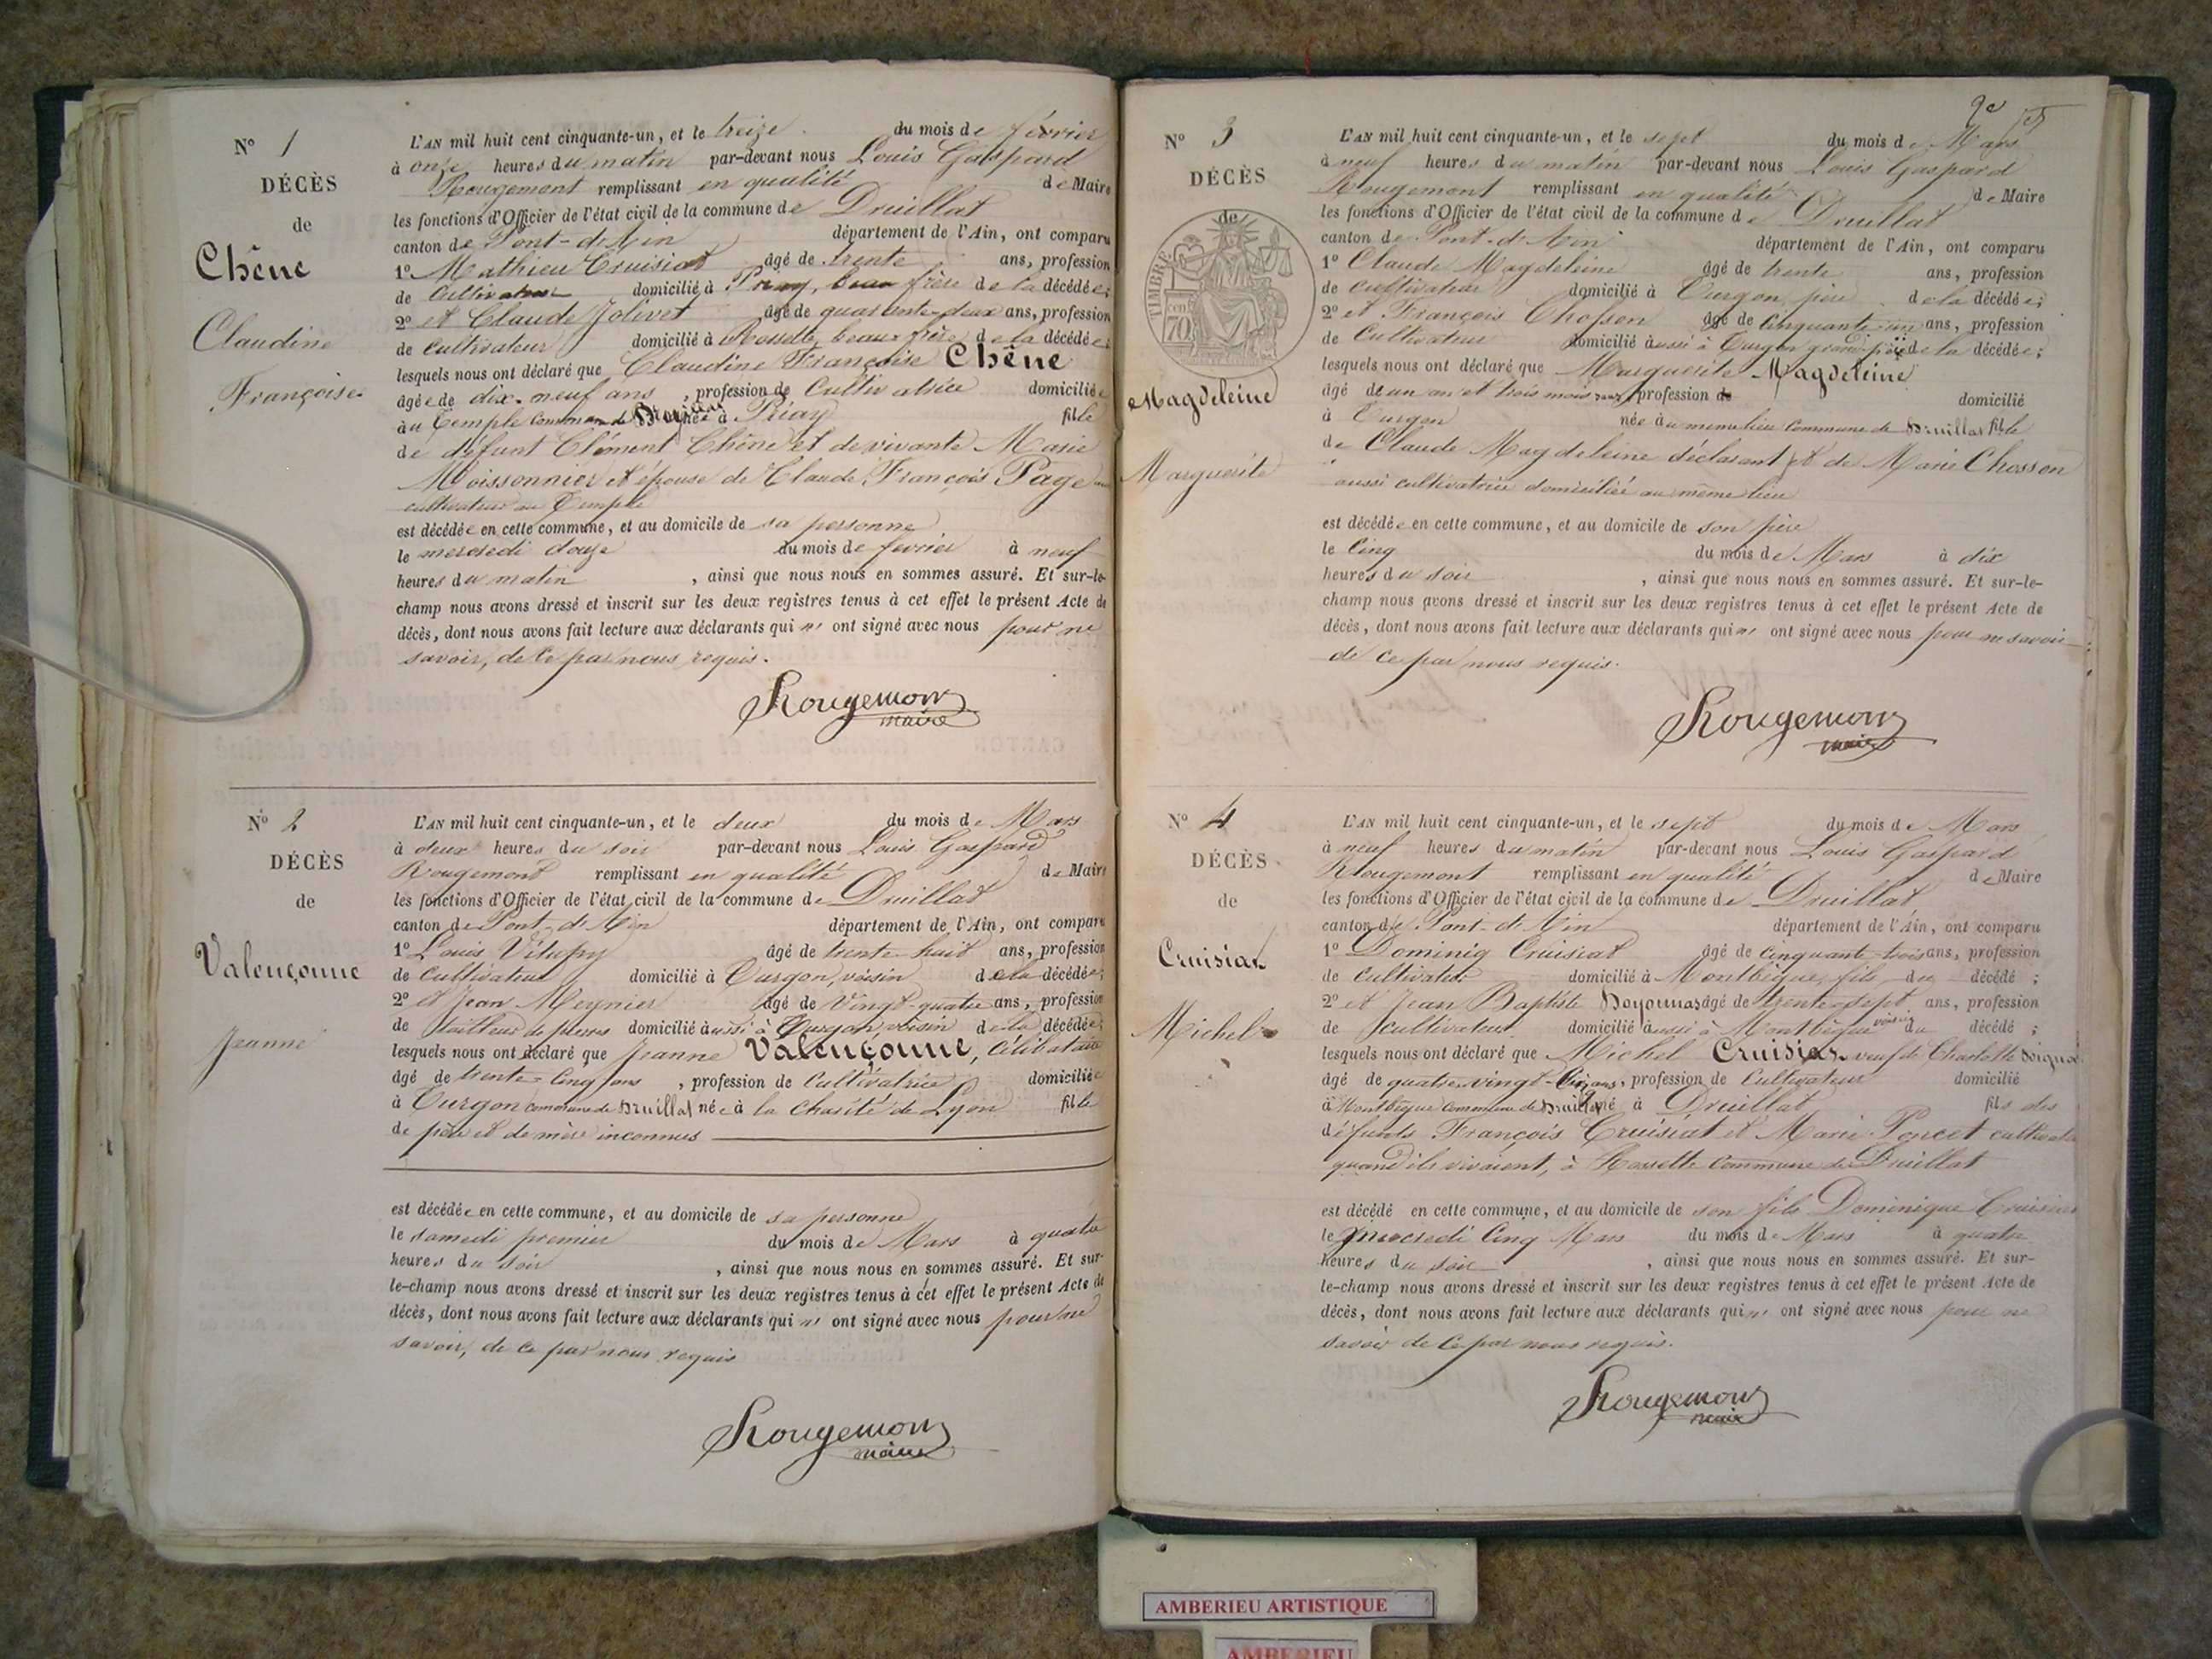 N° 1
DÉCÈS
de
Chêne
Claudine
Françoise
L'AN mil huit cent cinquante-un, et le treize du mois de février
à onze heures du matin par-devant nous Louis Gaspard
Rougemont remplissant en qualité de Maire
les fonctions d'Officier de l'état civil de la commune de Druillat
canton de Pont-d'Ain département de l'Ain, ont comparu
1° Mathieu Cruisiat âgé de trente ans, profession
de Cultivateur domicilié à Priay, beau frère de la décédée;
2° et Claude Jolivet âgé de quarente-deux ans, profession
de Cultivateur domicilié à Rossette, beau-frère de la décédée;
lesquels nous ont déclaré que Claudine Françoise Chêne
âgée de dix-neuf ans, profession de Cultivatrice domiciliée
au Temple Commune de Druillat née à Priay fille
de défunt Clément Chêne et de vivante Marie
Moissonnier et épouse de Claude François Page
cultivateur au Temple
est décédée en cette commune, et au domicile de sa personne
le mercredi douze du mois de février à neuf
heures du matin, ainsi que nous nous en sommes assuré. Et sur-le-
champ nous avons dressé et inscrit sur les deux registres tenus à cet effet le présent Acte de
décès, dont nous avons fait lecture aux déclarants qui n' ont signé avec nous pour ne
savoir, de ce par nous requis.
Rougemont
maire
N° 2
DÉCÈS
de
Valençonne
Jeanne
L'AN mil huit cent cinquante-un, et le deux du mois de Mars
à deux heures du soir par-devant nous Louis Gaspard
Rougemont remplissant en qualité de Maire
les fonctions d'Officier de l'état civil de la commune de Druillat
canton de Pont-d'Ain département de l'Ain, ont comparu
1° Louis Vitupy âgé de trente-huit ans, profession
de Cultivateur domicilié à Turgon, voisin de la décédée;
2° et Jean Meynier âgé de vingt-quatre ans, profession
de tailleur de pierres domicilié aussi à Turgon, voisin de la décédée;
lesquels nous ont déclaré que Jeanne Valençonne, Célibataire
âgé de trente-Cinq ans, profession de Cultivatrice domiciliée
à Turgon commune de Druillat née à la Charité de Lyon fille
de père et de mère inconnus
est décédée en cette commune, et au domicile de sa personne
le samedi premier du mois de Mars à quatre
heures du soir, ainsi que nous nous en sommes assuré. Et sur-
le-champ nous avons dressé et inscrit sur les deux registres tenus à cet effet le présent Acte de
décès, dont nous avons fait lecture aux déclarants qui n' ont signé avec nous pour ne
savoir, de ce par nous requis
Rougemont
maire
2e
N° 3
DÉCÈS
de
TIMBRE
70
Magdeleine
Marguerite
L'AN mil huit cent cinquante-un, et le sept du mois de Mars
à neuf heures du matin par-devant nous Louis Gaspard
Rougemont remplissant en qualité de Maire
les fonctions d'Officier de l'état civil de la commune de Druillat
canton de Pont-d'Ain département de l'Ain, ont comparu
1° Claude Magdeleine âgé de trente ans, profession
de Cultivateur domicilié à Turgon, père de la décédée;
2° et François Chosson âgé de Cinquante-un ans, profession
de Cultivateur domicilié aussi à Turgon grand-père de la décédée;
lesquels nous ont déclaré que Marguerite Magdeleine
âgé de un an et trois mois sans profession de domicilié
à Turgon née au même lieu Commune de Druillat fille
de Claude Magdeleine déclarant et de Marie Chosson
aussi cultivatrice domiciliée au même lieu
est décédée en cette commune, et au domicile de son père
le Cinq du mois de Mars à dix
heures du soir, ainsi que nous nous en sommes assuré. Et sur-le-
champ nous avons dressé et inscrit sur les deux registres tenus à cet effet le présent Acte de
décès, dont nous avons fait lecture aux déclarants qui n' ont signé avec nous pour ne savoir
de ce par nous requis.
Rougemont
maire
N° 4
DÉCÈS
de
Cruisiat
Michel
L'AN mil huit cent cinquante-un, et le sept du mois de Mars
à neuf heures du matin par-devant nous Louis Gaspard
Rougemont remplissant en qualité de Maire
les fonctions d'Officier de l'état civil de la commune de Druillat
canton de Pont-d'Ain département de l'Ain, ont comparu
1° Dominiq Cruisiat âgé de Cinquante-trois ans, profession
de Cultivateur domicilié à Montbègue, fils du décédé;
2° et Jean Baptiste Hoyonnas âgé de trente-sept ans, profession
de Cultivateur domicilié aussi à Montbègue voisin du décédé;
lesquels nous ont déclaré que Michel Cruisiat veuf de Charlotte
âgé de quatre-vingt-Cinq ans, profession de Cultivateur domicilié
à Montbègue Commune de Druillat né à Druillat fils des
défunts François Cruisiat et Marie Poncet
quand ils vivaient, à Rossette Commune de Druillat
est décédé en cette commune, et au domicile de son fils Dominique Cruisiat
le mercredi Cinq Mars du mois de Mars à quatre
heures du soir, ainsi que nous nous en sommes assuré. Et sur-
le-champ nous avons dressé et inscrit sur les deux registres tenus à cet effet le présent Acte de
décès, dont nous avons fait lecture aux déclarants qui n' ont signé avec nous pour ne
savoir de ce par nous requis.
Rougemont
maire
AMBERIEU ARTISTIQUE
AMBERIEU